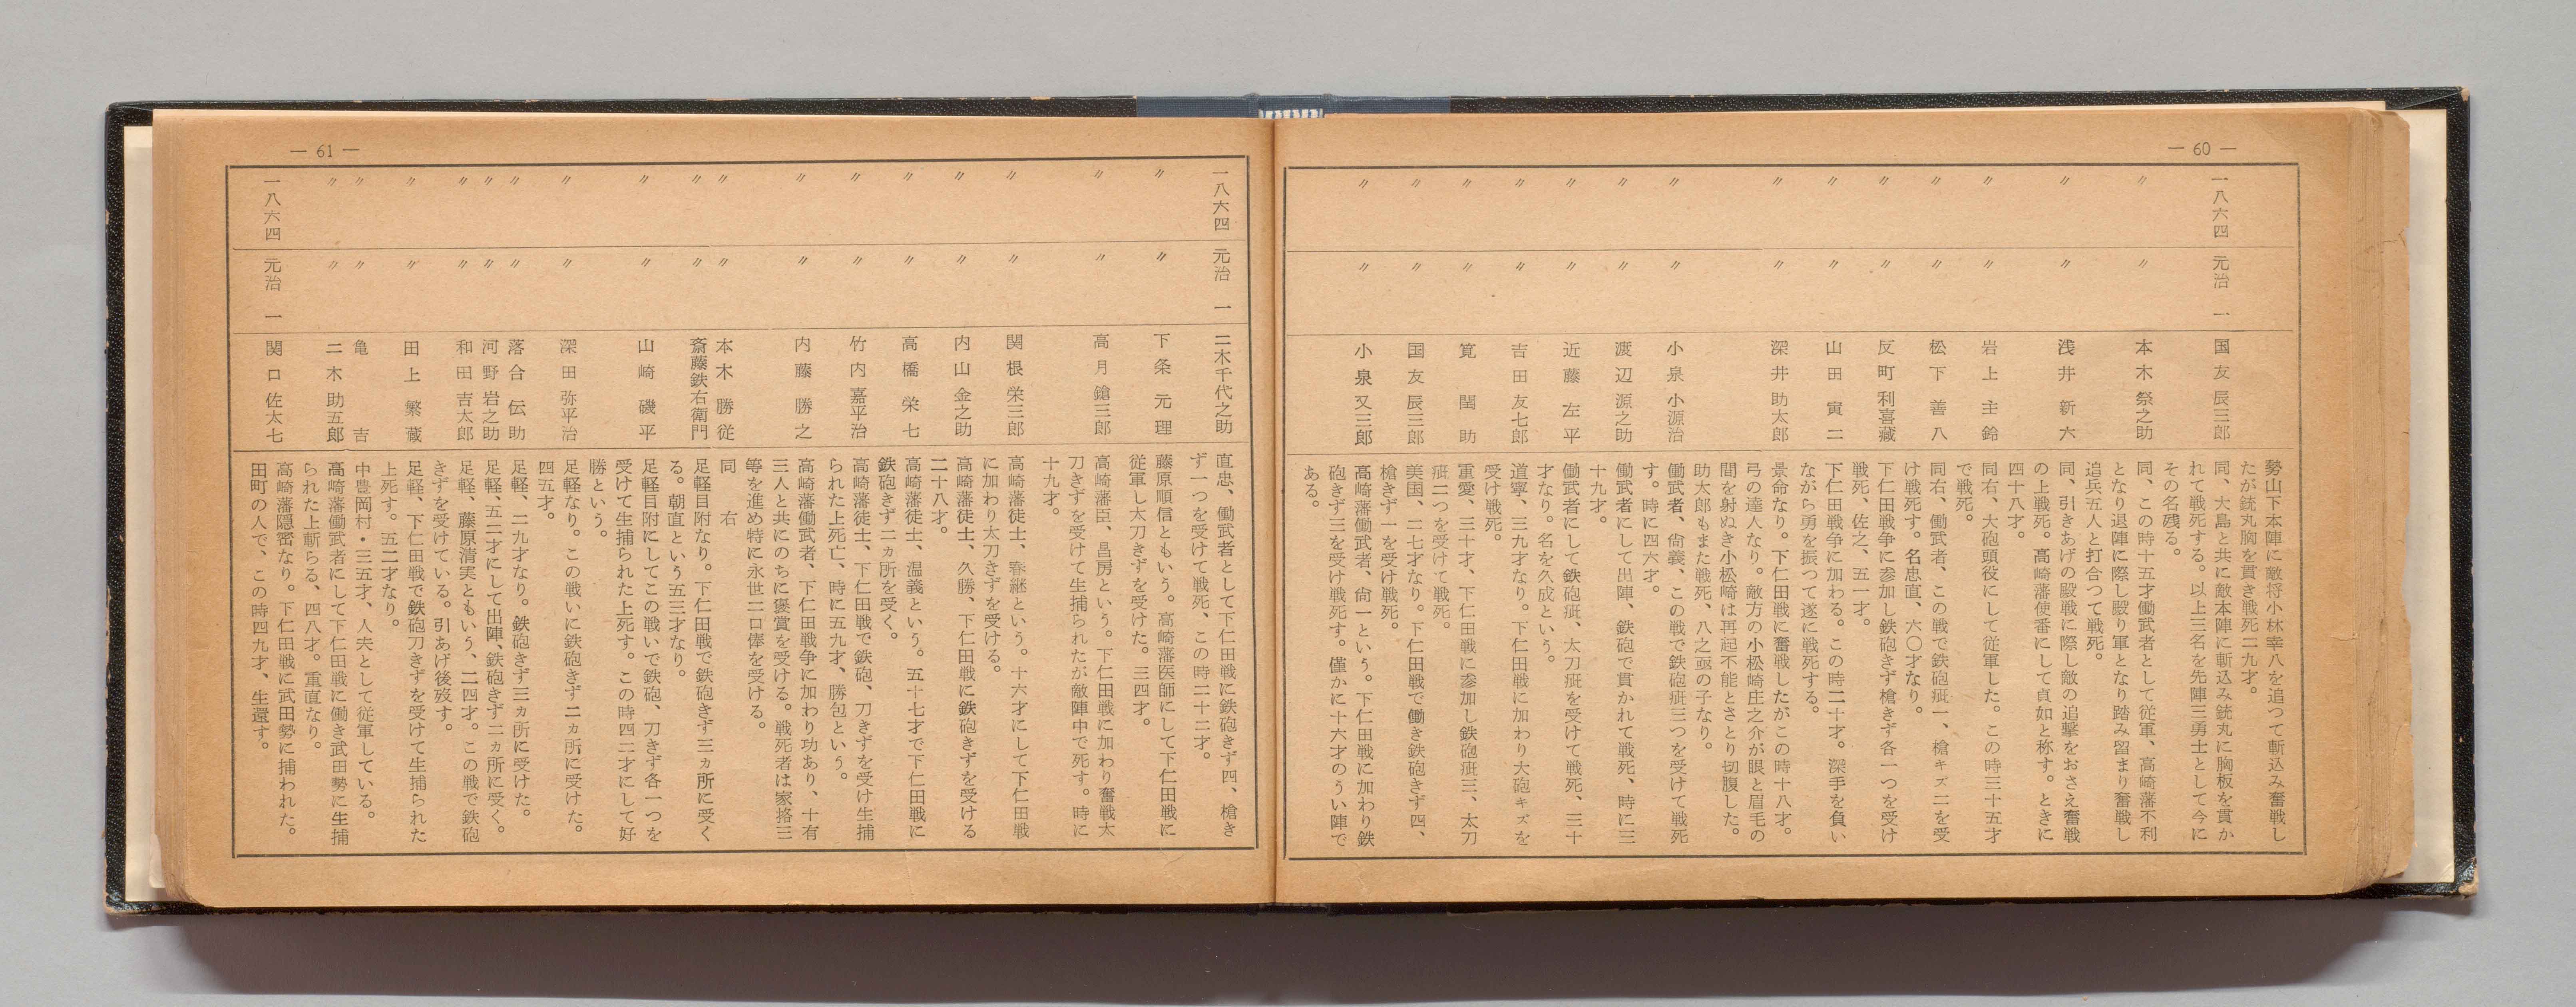 — 60 —
勢山下本陣に敵将小林幸八を追つて斬込み奮戦し
たが銃丸胸を貫き戦死二九才。
一八六四 元治 一 国友辰三郎 同、大島と共に敵本陣に斬込み銃丸に胸板を貫か
れて戦死する。以上三名を先陣三勇士として今に
その名残る。
〃 〃 本木祭之助 同、この時十五才働武者として従軍、高崎藩不利
となり退陣に際し殿り軍となり踏み留まり奮戦し
追兵五人と打合つて戦死。
〃 〃 浅井新六 同、引きあげの殿戦に際し敵の追撃をおさえ奮戦
の上戦死。高崎藩使番にして貞如と称す。ときに
四十八才。
〃 〃 岩上主鈴 同右、大砲頭役にして従軍した。この時三十五才
で戦死。
〃 〃 松下善八 同右、働武者、この戦で鉄砲疵一、槍キズ二を受
け戦死す。名忠直、六〇才なり。
〃 〃 反町利喜蔵 下仁田戦争に参加し鉄砲きず槍きず各一つを受け
戦死、佐之、五一才。
〃 〃 山田寅二 下仁田戦争に加わる。この時二十才。深手を負い
ながら勇を振つて遂に戦死する。
〃 〃 深井助太郎 景命なり。下仁田戦に奮戦したがこの時十八才。
弓の達人なり。敵方の小松崎庄之介が眼と眉毛の
間を射ぬき小松崎は再起不能とさとり切腹した。
助太郎もまた戦死、八之亟の子なり。
〃 〃 小泉小源治 働武者、尙義、この戦で鉄砲疵三つを受けて戦死
す。時に四六才。
〃 〃 渡辺源之助 働武者にして出陣、鉄砲で貫かれて戦死、時に三
十九才。
〃 〃 近藤左平 働武者にして鉄砲疵、太刀疵を受けて戦死、三十
才なり。名を久成という。
〃 〃 吉田友七郎 道寧、三九才なり。下仁田戦に加わり大砲キズを
受け戦死。
〃 〃 筧閏助 重愛、三十才、下仁田戦に参加し鉄砲疵三、太刀
疵二つを受けて戦死。
〃 〃 国友辰三郎 美国、二七才なり。下仁田戦で働き鉄砲きず四、
槍きず一を受け戦死。
〃 〃 小泉又三郎 高崎藩働武者、尙一という。下仁田戦に加わり鉄
砲きず三を受け戦死す。僅かに十六才のうい陣で
ある。
— 61 —
一八六四 元治 一 二木千代之助 直忠、働武者として下仁田戦に鉄砲きず四、槍き
ず一つを受けて戦死、この時二十二才。
〃 〃 下条元理 藤原順信ともいう。高崎藩医師にして下仁田戦に
従軍し太刀きずを受けた。三四才。
〃 〃 高月鎗三郎 高崎藩臣、昌房という。下仁田戦に加わり奮戦太
刀きずを受けて生捕られたが敵陣中で死す。時に
十九才。
〃 〃 関根栄三郎 高崎藩徒士、春継という。十六才にして下仁田戦
に加わり太刀きずを受ける。
〃 〃 内山金之助 高崎藩徒士、久勝、下仁田戦に鉄砲きずを受ける
二十八才。
〃 〃 高橋栄七 高崎藩徒士、温義という。五十七才で下仁田戦に
鉄砲きず二ヵ所を受く。
〃 〃 竹内嘉平治 高崎藩徒士、下仁田戦で鉄砲、刀きずを受け生捕
られた上死亡、時に五九才、勝包という。
〃 〃 内藤勝之 高崎藩働武者、下仁田戦争に加わり功あり、十有
三人と共にのちに褒賞を受ける。戦死者は家格三
等を進め特に永世二口俸を受ける。
〃 〃 本木勝従 同右
〃 〃 斎藤鉄右衛門 足軽目附なり。下仁田戦で鉄砲きず三ヵ所に受く
る。朝直という五三才なり。
〃 〃 山崎磯平 足軽目附にしてこの戦いで鉄砲、刀きず各一つを
受けて生捕られた上死す。この時四二才にして好
勝という。
〃 〃 深田弥平治 足軽なり。この戦いに鉄砲きず二ヵ所に受けた。
四五才。
〃 〃 落合伝助 足軽、二九才なり。鉄砲きず三ヵ所に受けた。
〃 〃 河野岩之助 足軽、五二才にして出陣、鉄砲きず二ヵ所に受く。
〃 〃 和田吉太郎 足軽、藤原清実ともいう、二四才。この戦で鉄砲
きずを受けている。引あげ後歿す。
〃 〃 田上繁蔵 足軽、下仁田戦で鉄砲刀きずを受けて生捕られた
上死す。五二才なり。
〃 〃 亀吉 中豊岡村・三五才、人夫として従軍している。
〃 〃 二木助五郎 高崎藩働武者にして下仁田戦に働き武田勢に生捕
られた上斬らる、四八才。重直なり。
一八六四 元治 一 関口佐太七 高崎藩隠密なり。下仁田戦に武田勢に捕われた。
田町の人で、この時四九才、生還す。